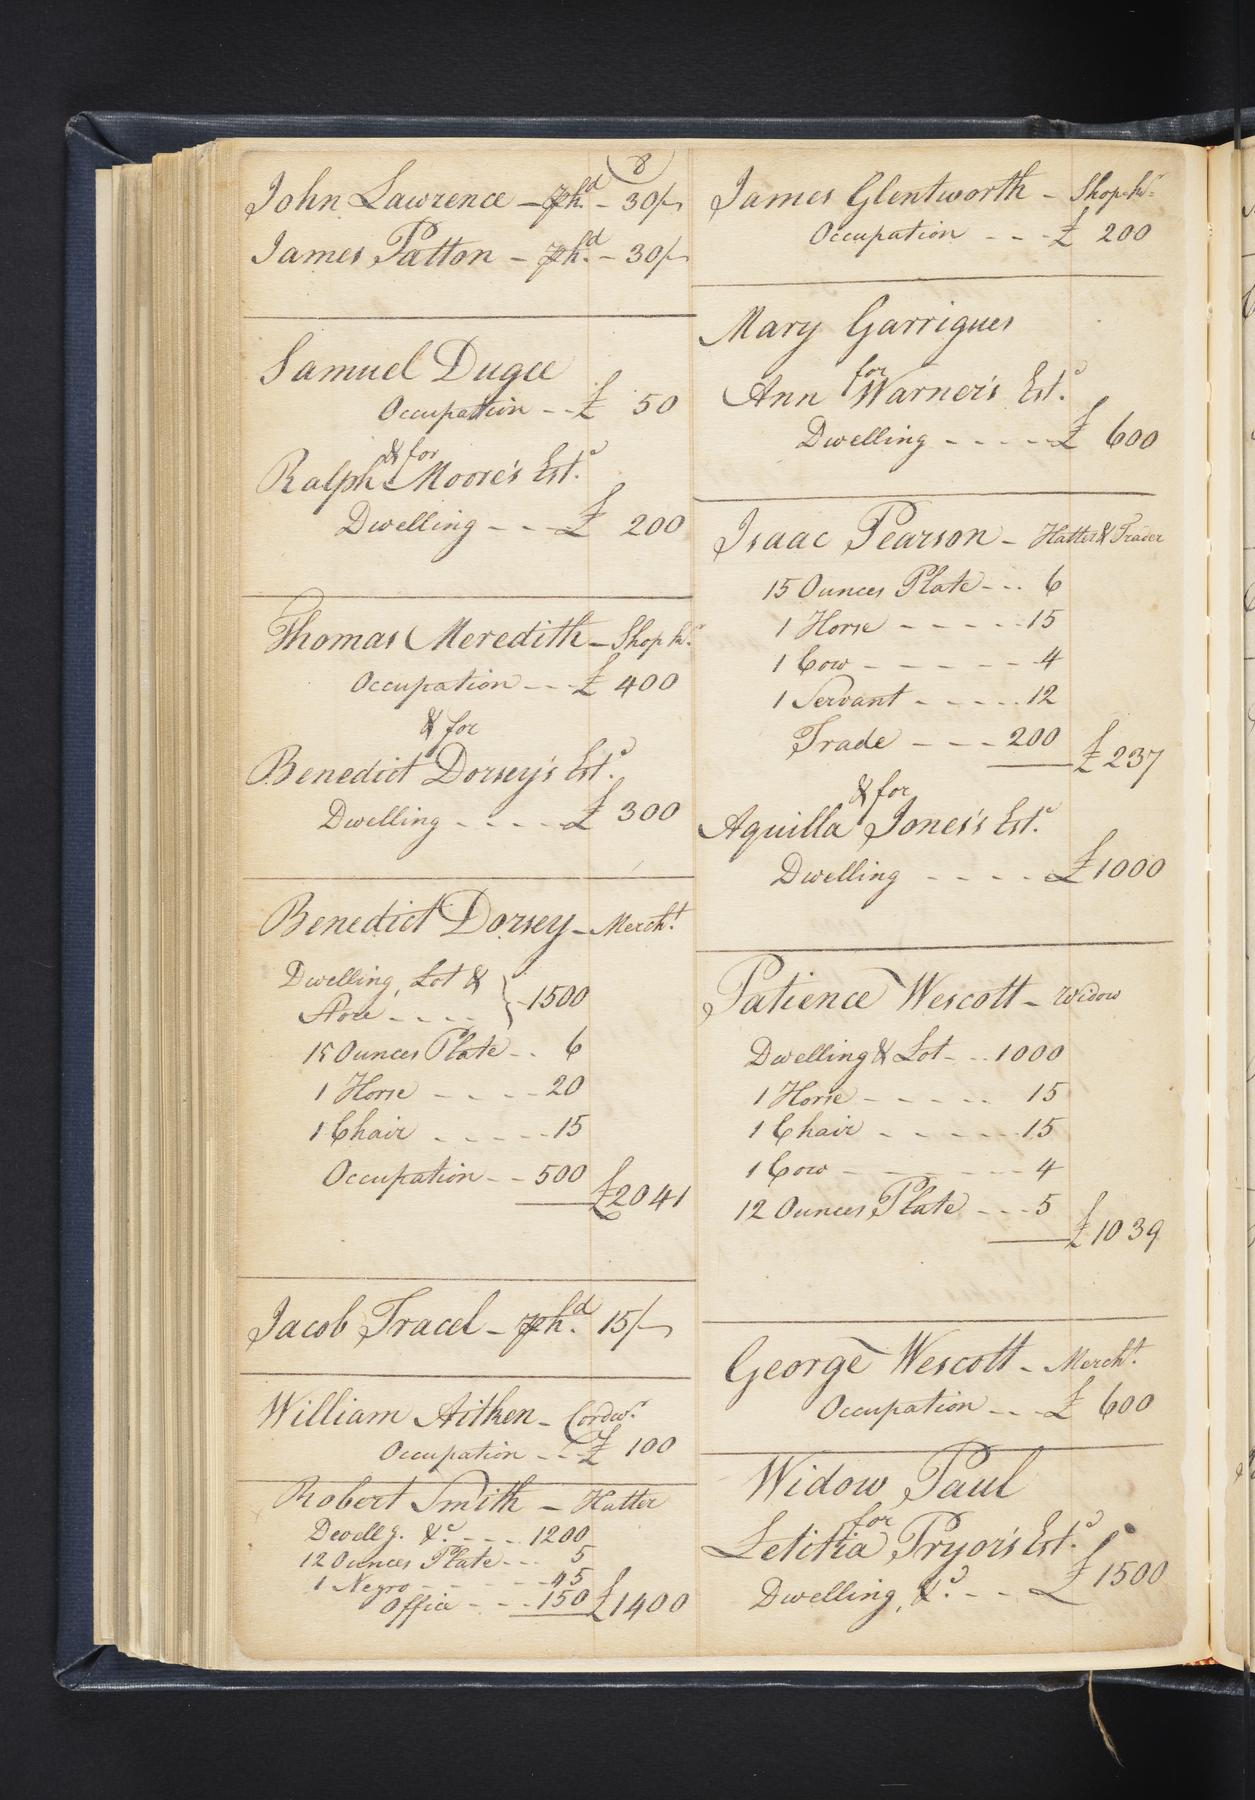 8
John Lawrence - phd. - 30/-
James Patton - phd. - 30/-
Samuel Dugee
Occupation - - £ 50
& for
Ralph Moore's Este.
Dwelling - - - £ 200
Thomas Meredith - Shopkr.
Occupation - - - £ 400
& for
Benedict Dorsey's Este.
Dwelling - - - - £ 300
Benedict Dorsey - Mercht.
Dwelling, Lot & } 1500
Store - - - -
15 Ounces Plate - - 6
1 Horse - - - - - 20
1 Chair - - - - - 15
Occupation - - 500
£2041
Jacob Tracel - phd. 15/-
William Aitken - Cordwr.
Occupation - - - £ 100
Robert Smith - Hatter
Dwellg. &c. - - - 1200
12 Ounces Plate - - - 5
1 Negro - - - - - - 45
Office - - - 150 £1400
James Glentworth - Shopkr.
Occupation - - - £ 200
Mary Garrigues
for
Ann Warner's Este.
Dwelling - - - - - £ 600
Isaac Pearson - Hatter & Trader
15 Ounces Plate - - - 6
1 Horse - - - - - 15
1 Cow - - - - - - 4
1 Servant - - - - - 12
Trade - - - - 200
£237
& for
Aquilla Jones's Este.
Dwelling - - - - £1000
Patience Wescott - Widow
Dwelling & Lot - - - 1000
1 Horse - - - - - 15
1 Chair - - - - - - 15
1 Cow - - - - - - - 4
12 Ounces Plate - - - 5
£1039
George Wescott - Mercht.
Occupation - - - £ 600
Widow Paul
for
Letitia Pryor's Este.
Dwelling, &c. - - - £1500